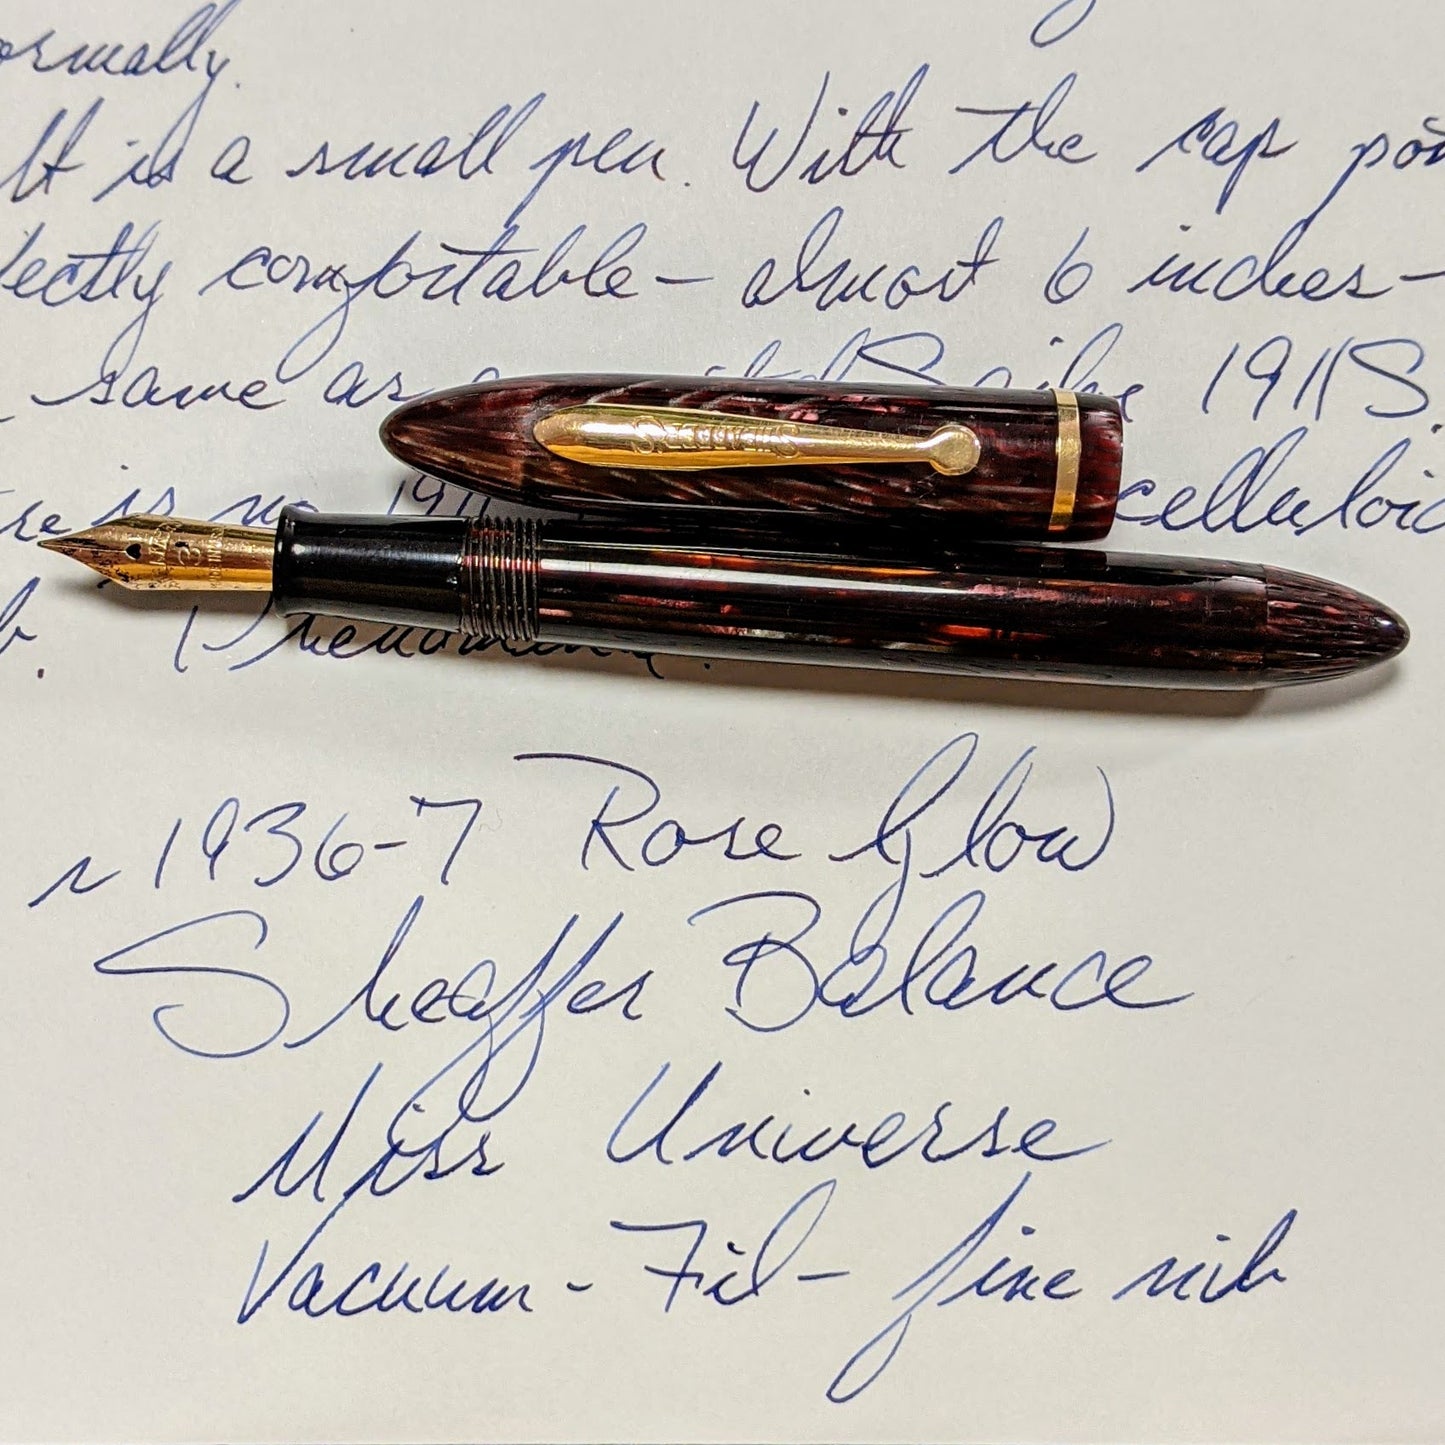 ormally.
It is a small pen. With the cap pos
fectly comfortable – almost 6 inches –
same as 1911S.
re is no 1911 celluloid
b. Phenomenal.
SHEAFFER'S
~1936-7 Rose Glow
Sheaffer Balance
Miss Universe
Vacuum-Fil – fine nib